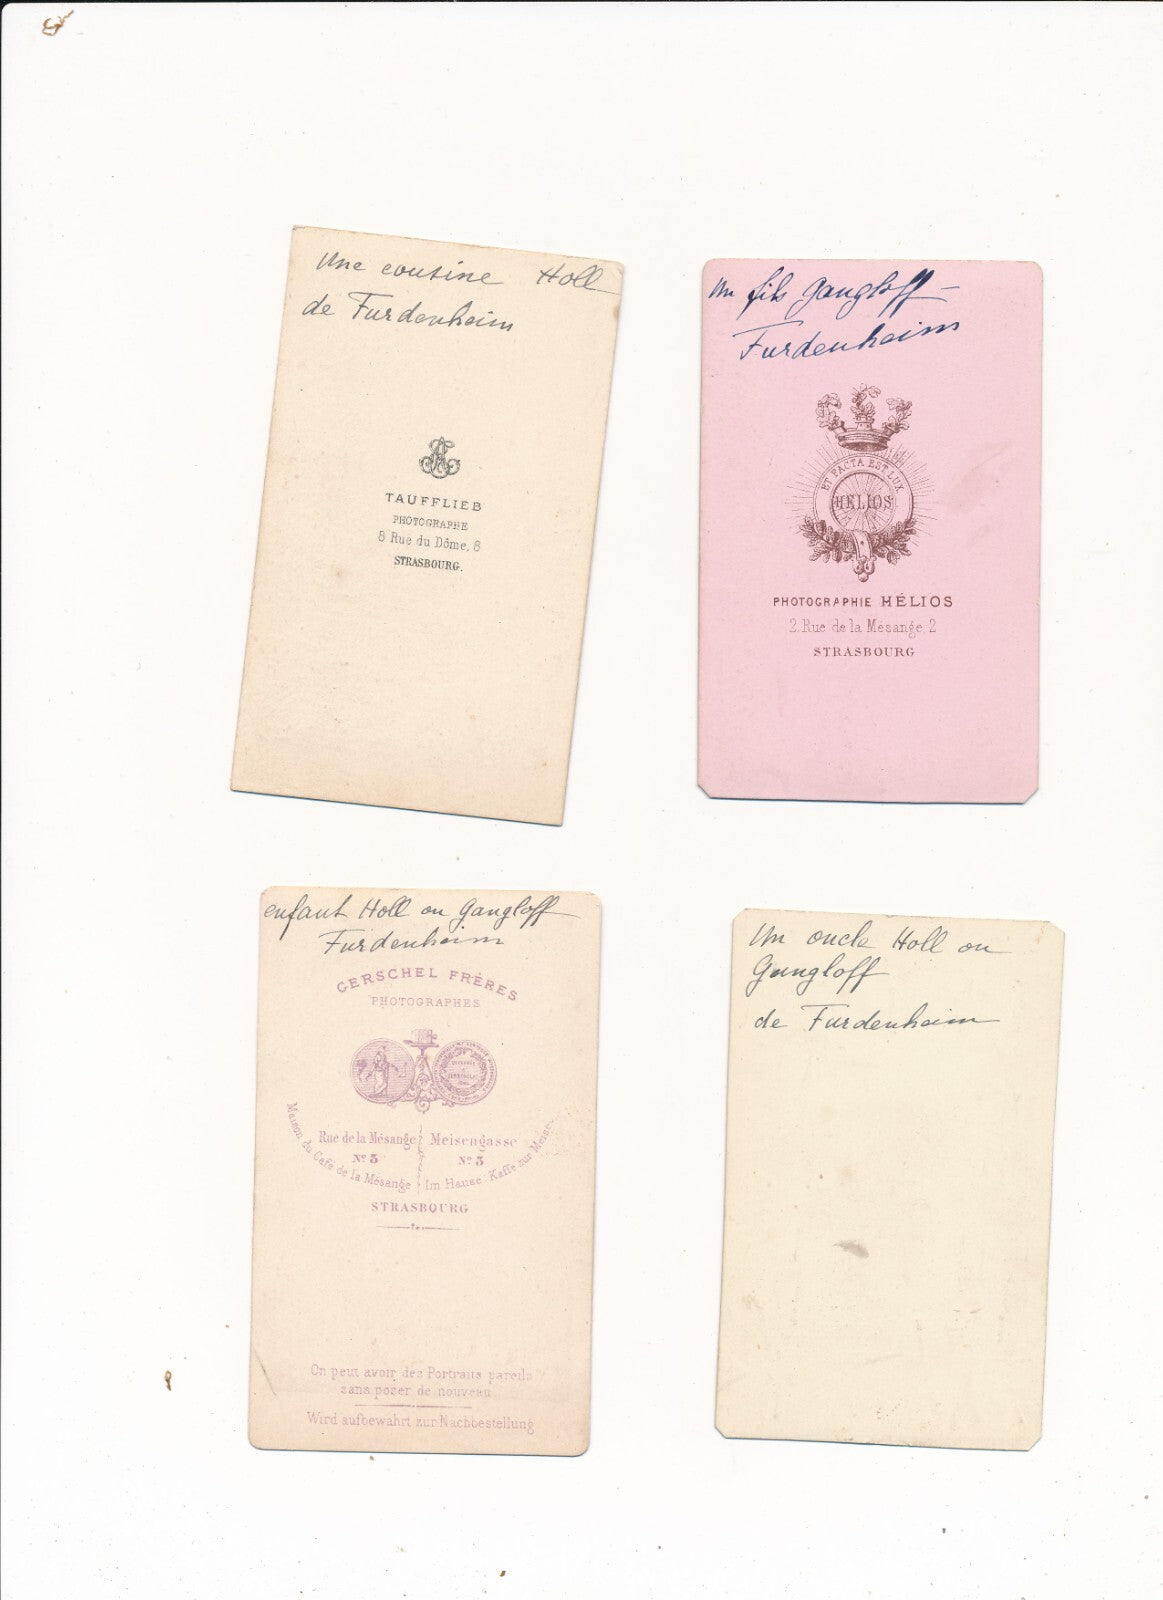 Une cousine Holl
de Furdenheim
TAUFFLIEB
PHOTOGRAPHE
8 Rue du Dôme, 8
STRASBOURG.
Un fils Gangloff -
Furdenheim
ET FACTA EST LUX
HELIOS
PHOTOGRAPHIE HÉLIOS
2. Rue de la Mesange, 2
STRASBOURG
enfant Holl ou Gangloff
Furdenheim
GERSCHEL FRÈRES
PHOTOGRAPHES
Rue de la Mésange
No 3
Meisengasse
No 3
Maison du Café de la Mésange
Im Hause Kaffe zur Meise
STRASBOURG
On peut avoir des Portraits pareils
sans poser de nouveau
Wird aufbewahrt zur Nachbestellung
Un oncle Holl ou
Gangloff
de Furdenheim